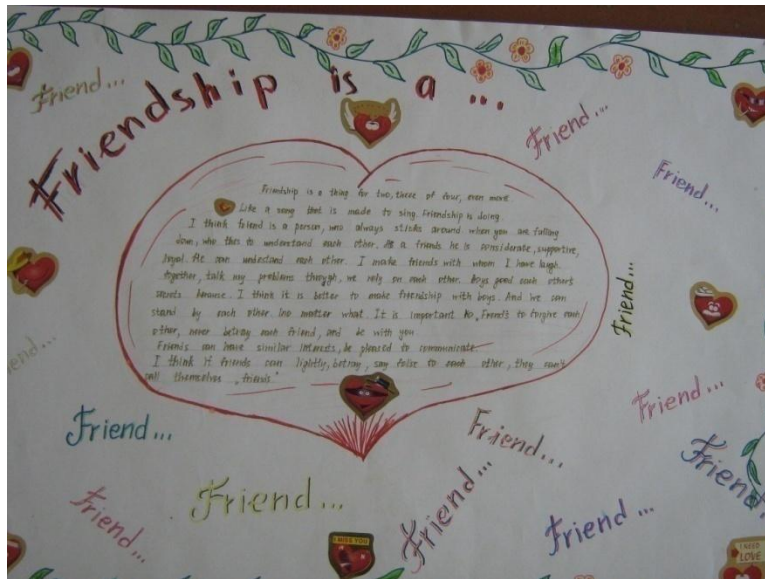 Friendship is a ...
Friend...
Friend...
Friend...
Friendship is a thing for two, three of four, even more
Like a song that is made to sing. Friendship is doing.
I think friend is a person, who always sticks around when you are falling
down, who tries to understand each other. As a friends he is considerate, supportive,
loyal. He can undestand each other. I make friends with whom I have laugh
together, talk my problems through, we rely on each other. Boys good each others
secrets because I think it is better to make friendship with boys. And we can
stand by each other no matter what. It is important to friends to forgive each
other, never betray each friend, and be with you
Friends can have similar interests, be pleased to communicate
I think if friends can lightly, betray, say false to each other, they can't
call themselves „friends"
Friend...
Friend...
Friend...
Friend...
Friend...
Friend...
Friend
Friend...
Friend...
Friend...
I MISS YOU
I NEED
LOVE